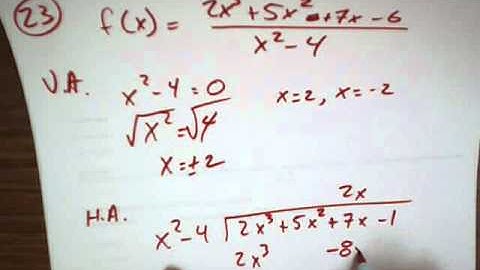 23 f(x) = 2x³ + 5x² + 7x - 6
x² - 4
V.A. x² - 4 = 0 x = 2, x = -2
√x² = √4
x = ± 2
2x
H.A. x² - 4 √2x³ + 5x² + 7x - 1
2x³ -8x